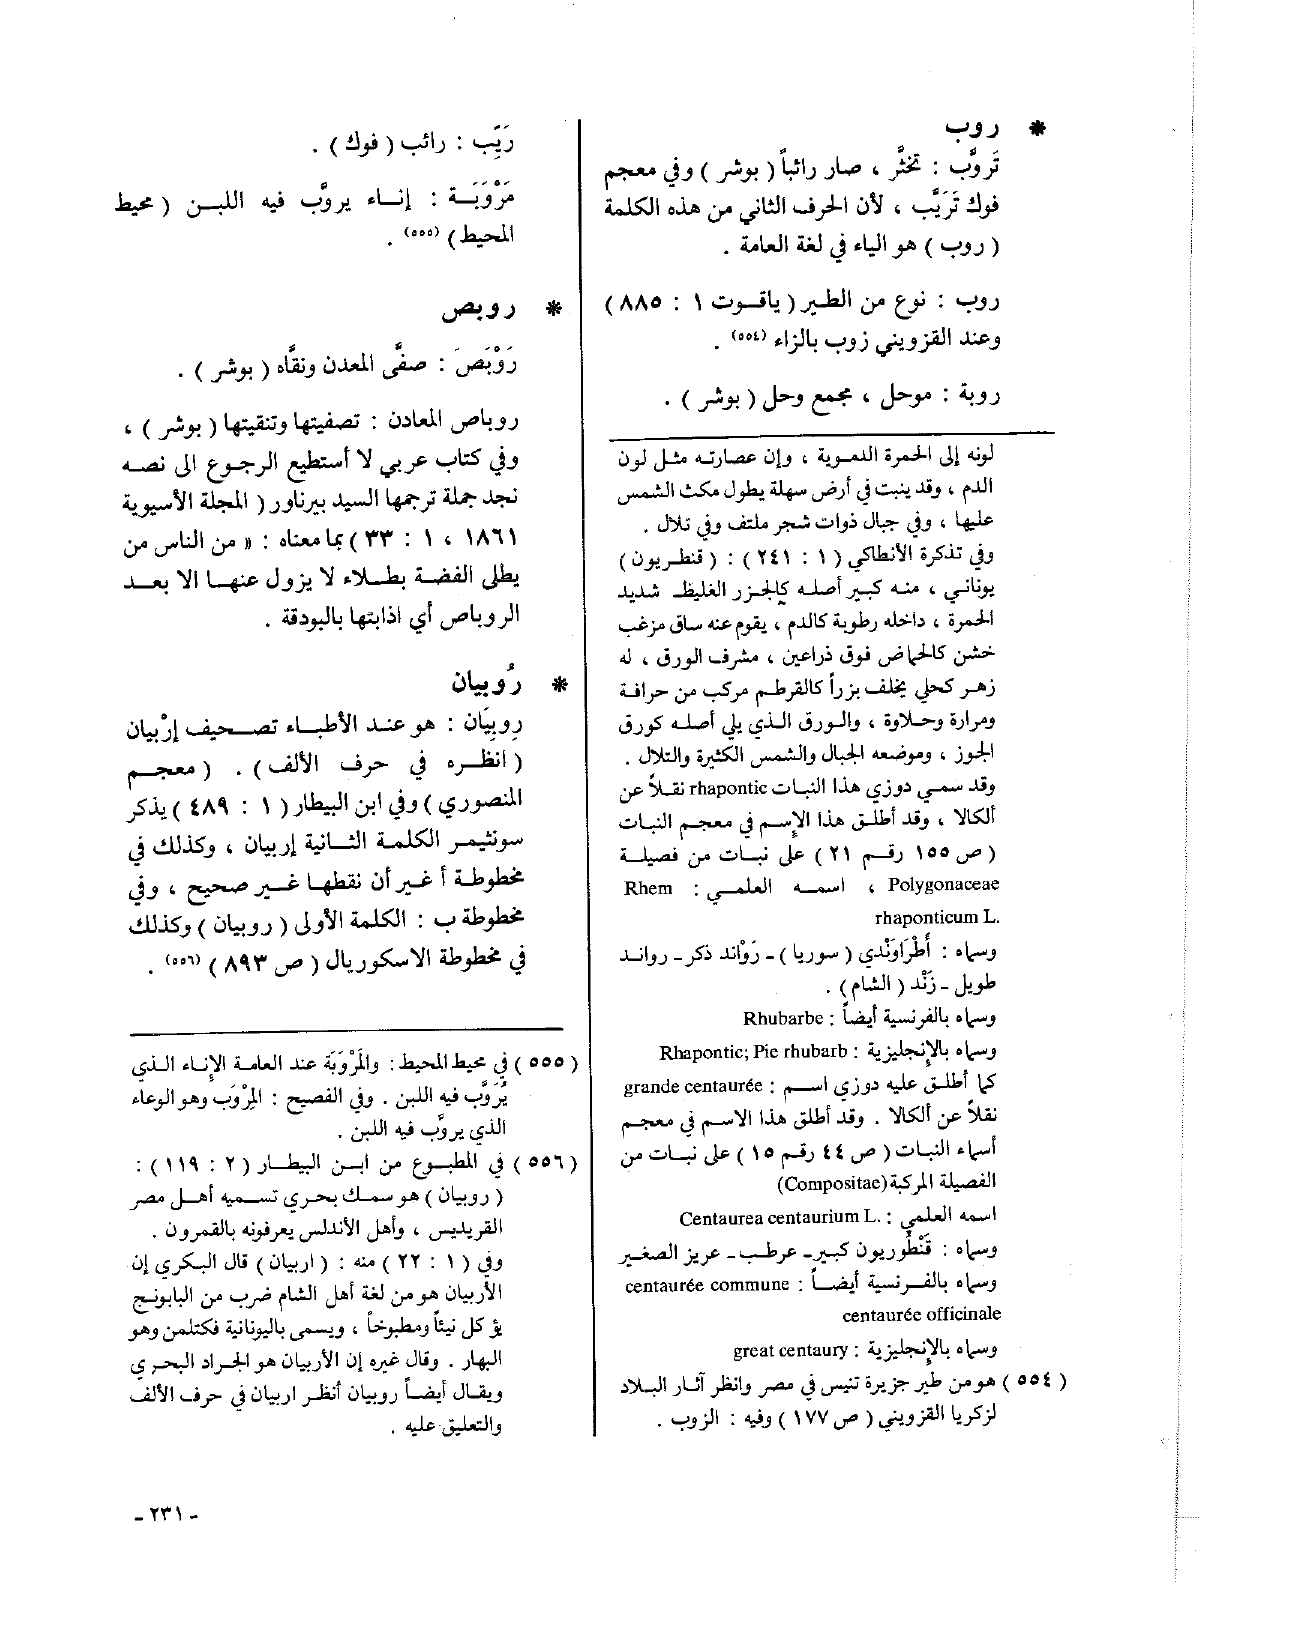 * روب
تَروَّب : تخثَّر ، صار رائباً ( بوشر ) وفي معجم
فوك تَرَيَّب ، لأن الحرف الثاني من هذه الكلمة
( روب ) هو الياء في لغة العامة .
روب : نوع من الطير ( ياقوت ١ : ٨٨٥ )
وعند القزويني زوب بالزاء (٥٥٤) .
روبة : موحل ، مجمع وحل ( بوشر ) .
لونه إلى الحمرة الدموية ، وإن عصارته مثل لون
الدم ، وقد ينبت في أرض سهلة يطول مكث الشمس
عليها ، وفي جبال ذوات شجر ملتف وفي تلال .
وفي تذكرة الأنطاكي ( ١ : ٢٤١ ) : ( قنطريون )
يوناني ، منه كبير أصله كالجزر الغليظ شديد
الحمرة ، داخله رطوبة كالدم ، يقوم عنه ساق مزغب
خشن كالحماض فوق ذراعين ، مشرف الورق ، له
زهر كحلي يخلف بزراً كالقرطم مركب من حرافة
ومرارة وحلاوة ، والورق الذي يلي أصله كورق
الجوز ، وموضعه الجبال والشمس الكثيرة والتلال .
وقد سمي دوزي هذا النبات rhapontic نقلاً عن
ألكالا ، وقد أطلق هذا الإسم في معجم النبات
( ص ١٥٥ رقم ٢١ ) على نبات من فصيلة
Polygonaceae ، اسمه العلمي : Rhem
rhaponticum L.
وسماه : أُطْرَاوَنْدي ( سوريا ) - رَوْاند ذكر - رواند
طويل - زَنْد ( الشام ) .
وسماه بالفرنسية أيضاً : Rhubarbe
وسماه بالإنجليزية : Rhapontic; Pie rhubarb
كما أطلق عليه دوزي اسم : grande centaurée
نقلاً عن ألكالا . وقد أطلق هذا الاسم في معجم
أسماء النبات ( ص ٤٤ رقم ١٥ ) على نبات من
الفصيلة المركبة (Compositae)
اسمه العلمي : Centaurea centaurium L.
وسماه : قَنْطُوريون كبير - عرطب - عريز الصغير
وسماه بالفرنسية أيضاً : centaurée commune
centaurée officinale
وسماه بالإنجليزية : great centaury
( ٥٥٤ ) هو من طير جزيرة تنيس في مصر وانظر آثار البلاد
لزكريا القزويني ( ص ١٧٧ ) وفيه : الزوب .
رَيِّب : رائب ( فوك ) .
مَرْوَبَة : إناء يروَّب فيه اللبن ( محيط
المحيط ) (٥٥٥) .
* روبص
رَوْبَصَ : صفَّى المعدن ونقَّاه ( بوشر ) .
روباص المعادن : تصفيتها وتنقيتها ( بوشر ) ،
وفي كتاب عربي لا أستطيع الرجوع الى نصه
نجد جملة ترجمها السيد بيرناور ( المجلة الأسيوية
١٨٦١ ، ١ : ٣٣ ) بما معناه : « من الناس من
يطلي الفضة بطلاء لا يزول عنها الا بعد
الروباص أي اذابتها بالبودقة .
* رُوبيان
رِوبِيَان : هو عند الأطباء تصحيف إرْبيان
( انظره في حرف الألف ) . ( معجم
المنصوري ) وفي ابن البيطار ( ١ : ٤٨٩ ) يذكر
سونثيمر الكلمة الثانية إربيان ، وكذلك في
مخطوطة أ غير أن نقطها غير صحيح ، وفي
مخطوطة ب : الكلمة الأولى ( روبيان ) وكذلك
في مخطوطة الاسكوريال ( ص ٨٩٣ ) (٥٥٦) .
( ٥٥٥ ) في محيط المحيط : والمَرْوَبَة عند العامة الإناء الذي
يُرَوَّب فيه اللبن . وفي الفصيح : المِرْوَب وهو الوعاء
الذي يروَّب فيه اللبن .
( ٥٥٦ ) في المطبوع من ابن البيطار ( ٢ : ١١٩ ) :
( روبيان ) هو سمك بحري تسميه أهل مصر
القريدس ، وأهل الأندلس يعرفونه بالقمرون .
وفي ( ١ : ٢٢ ) منه : ( اربيان ) قال البكري إن
الأربيان هو من لغة أهل الشام ضرب من البابونج
يؤكل نيئاً ومطبوخاً ، ويسمى باليونانية فكتلمن وهو
البهار . وقال غيره إن الأربيان هو الجراد البحري
ويقال أيضاً روبيان أنظر اربيان في حرف الألف
والتعليق عليه .
- ٢٣١ -